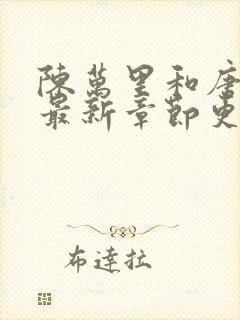 陳萬里和唐
最新章節更
布達拉